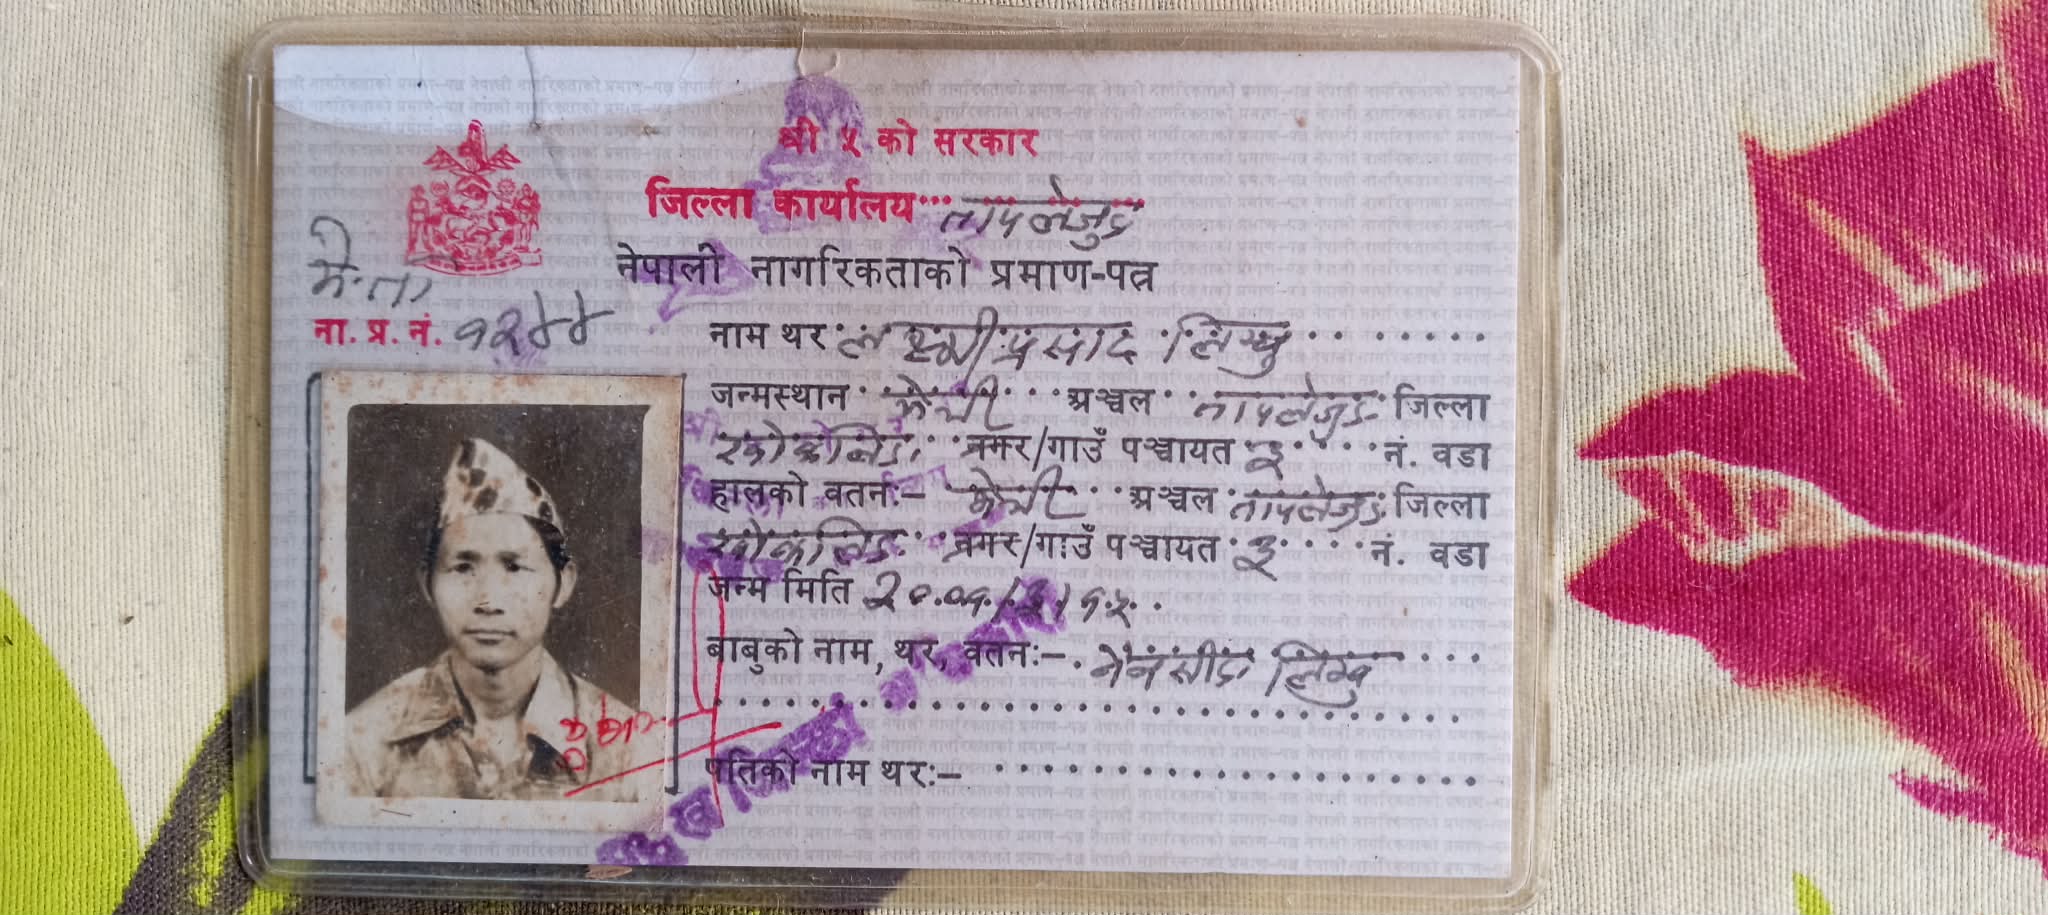 श्री ५ को सरकार
जिल्ला कार्यालय ताप्लेजुङ
नेपाली नागरिकताको प्रमाण-पत्र
मे.ता
ना. प्र. नं. १२४४
नाम थर लक्ष्मी प्रसाद लिम्बु
जन्मस्थान मेची अञ्चल ताप्लेजुङ जिल्ला
नगर/गाउँ पञ्चायत ३ नं. वडा
हालको वतनः– मेची अञ्चल ताप्लेजुङ जिल्ला
नगर/गाउँ पञ्चायत ३ नं. वडा
जन्म मिति
बाबुको नाम, थर, वतनः– लिम्बु
पतिको नाम थरः–